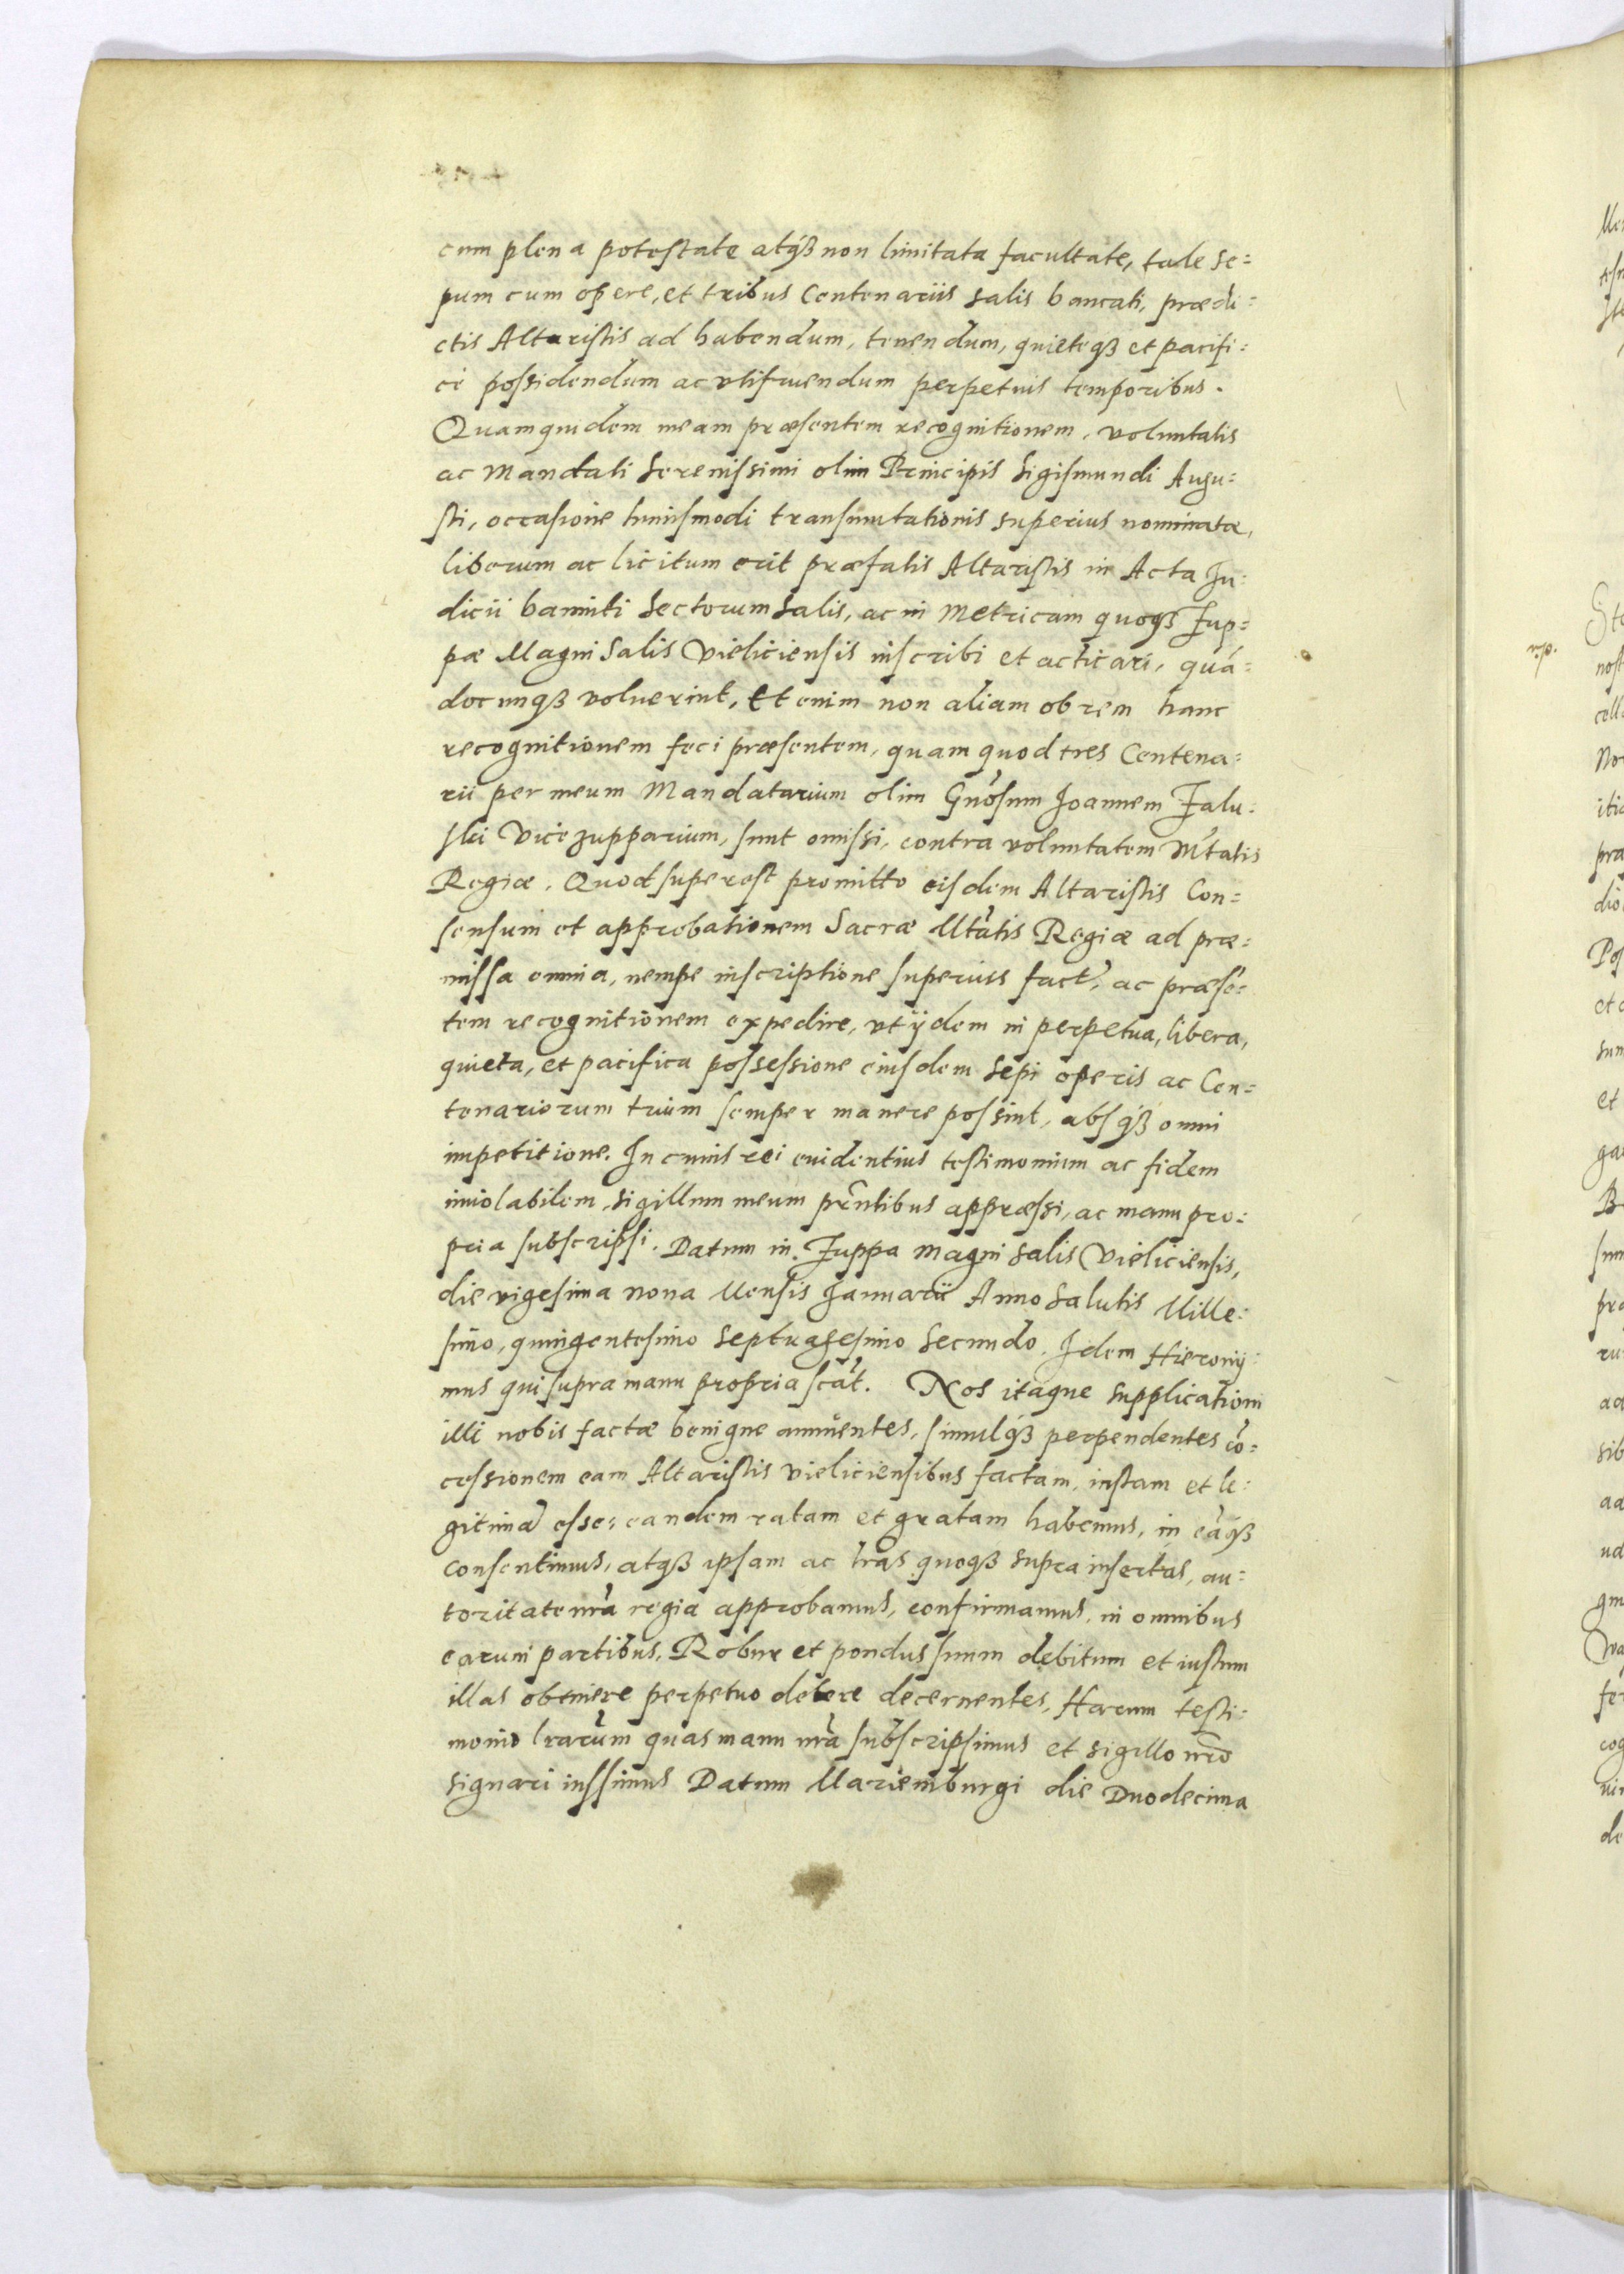 cum plena potestate atq́ȝ non limitata facultate, tale se=
pum cum opere, et tribus Centenariis salis bancati, prædi=
ctis Altaristis ad habendum, tenendum, quieteqȝ et pacifi=
cè possidendum ac vtifruendum perpetuis temporibus.
Quamquidem meam præsentem recognitionem, voluntatis
ac Mandati Serenissimi olim Principis Sigismundi Augu=
sti, occasione huiusmodi transmutationis superius nominatæ,
liberum ac licitum erit præfatis Altaristis in Acta Iu=
dicii banniti Sectorum Salis, ac in Metricam quoqȝ Zup=
pæ Magni Salis Vieliciensis inscribi et acticari, quá=
docunqȝ voluerint, Etenim non aliam ob rem hanc
recognitionem feci præsentem, quam quod tres Centena=
rii per meum Mandatarium olim Gñosum Joannem Zalu=
ski Vicezupparium, sunt omissi, contra voluntatem Mtatis
Regiæ. Quod superest promitto eisdem Altaristis Con=
sensum et approbationem Sacræ Mtatis Regiæ ad præ=
missa omnia, nempe inscriptione superius fact, ac præsē=
tem recognitionem expedire, vt ijdem in perpetua, libera,
quieta, et pacifica possessione eiusdem Sepi operis ac Cen=
tenariorum trium semper manere possint, absq́ȝ omni
impetitione. In cuius rei euidentius testimonium ac fidem
inuiolabilem, sigillum meum prñtibus appræssi, ac manu pro=
pria subscripsi. Datum in Zuppa Magni Salis Vieliciensis,
die vigesima nona Mensis Januarii Anno Salutis Mille=
simo, quingentesimo Septuagesimo Secundo. Idem Hierony=
mus qui supra manu propria scāt. Nos itaque supplicationi
illi nobis factæ benigne annuentes, simulq́ȝ perpendentes cō=
cessionem eam Altaristis Vieliciensibus factam, iustam et le=
gitimā esse, eandem ratam et gratam habemus, in eāqȝ
consentimus, atqȝ ipsam ac lras quoqȝ supra insertas, au=
toritate nrā regia approbamus, confirmamus, in omnibus
earum partibus, Robur et pondus suum debitum et iustum
illas obtinere perpetuo debere decernentes, Harum testi=
monio lrarum quas manu nrā subscripsimus et sigillo nrō
signari iussimus Datum Mariemburgi die Duodecima
r.p.